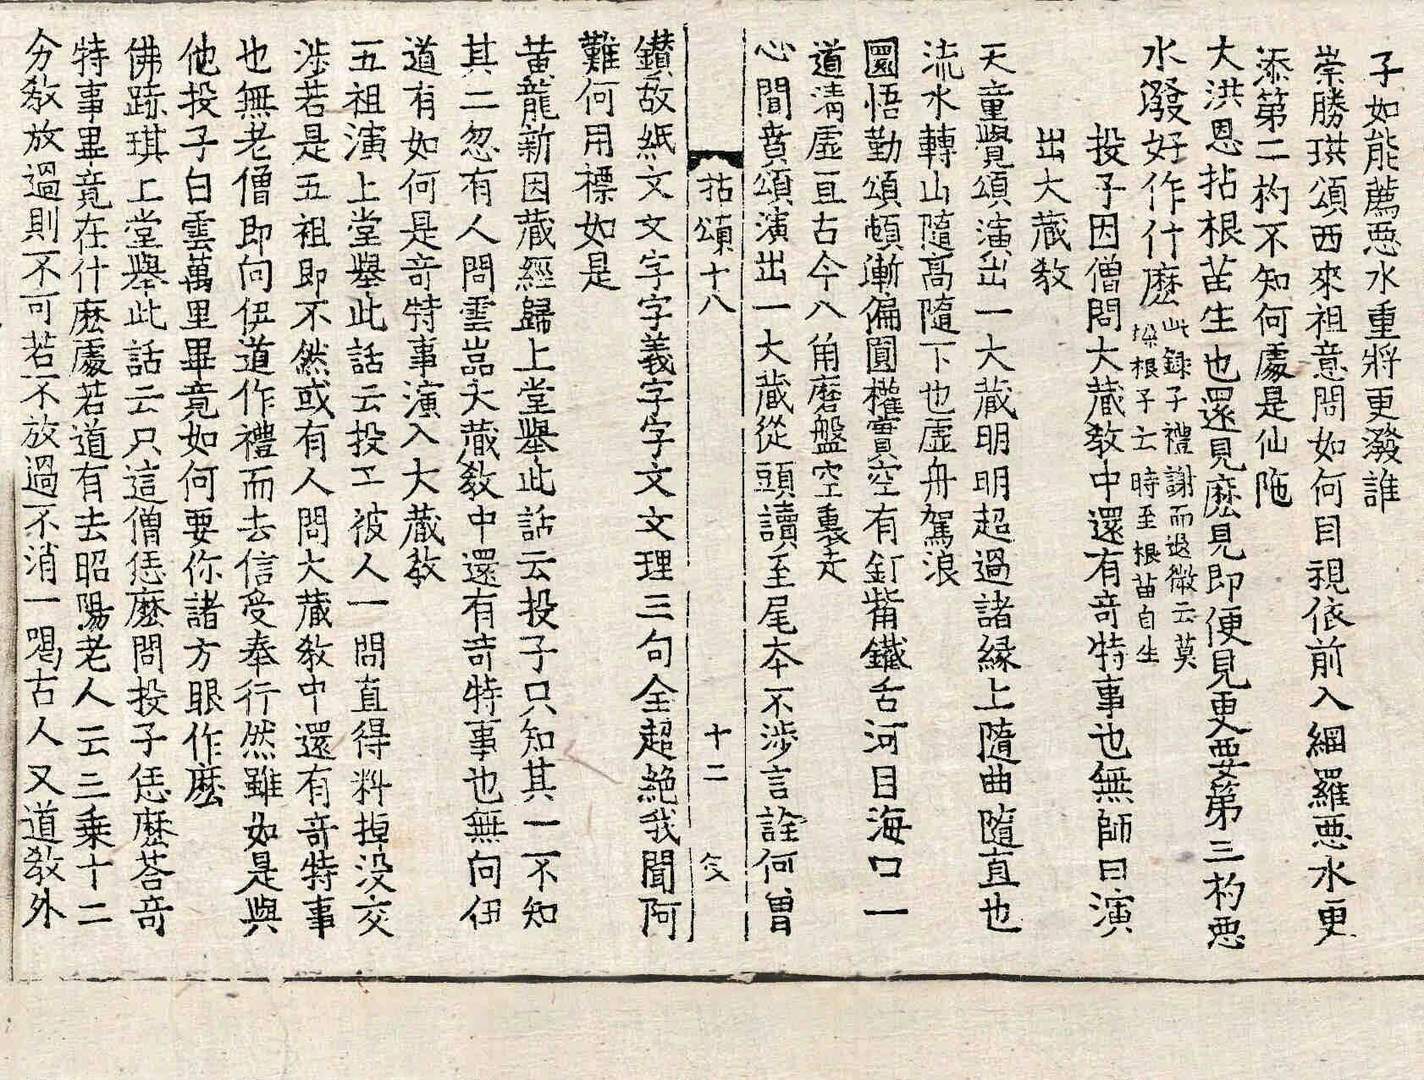 子如能薦惡水重將更潑誰
崇勝珙頌西來祖意問如何目視依前入網羅惡水更
添第二杓不知何處是仙陁
大洪恩拈根苗生也還見麽見即便見更要第三杓惡
水潑好作什麽此錄子禮謝而退微云莫
垛根子亡時至根苗自生
投子因僧問大藏教中還有奇特事也無師曰演
出大藏教
天童覺頌演出一大藏明明超過諸緣上隨曲隨直也
流水轉山隨高隨下也虛舟駕浪
圜悟勤頌頓漸偏圓權實空有釘觜鐵舌河目海口一
道淸虛亘古今八角磨盤空裏走
心聞賁頌演出一大藏從頭讀至尾本不涉言詮何曾
拈頌十八 十二
鑚故紙文文字字義字字文文理三句全超絶我聞阿
難何用標如是
黃龍新因藏經歸上堂擧此話云投子只知其一不知
其二忽有人問雲嵓大藏教中還有奇特事也無向伊
道有如何是奇特事演入大藏教
五祖演上堂擧此話云投子被人一問直得料掉没交
涉若是五祖即不然或有人問大藏教中還有奇特事
也無老僧即向伊道作禮而去信受奉行然雖如是與
他投子白雲萬里畢竟如何要你諸方眼作麽
佛跡琪上堂擧此話云只這僧恁麽問投子恁麽荅奇
特事畢竟在什麽處若道有去昭陽老人云三乘十二
分教放過則不可若不放過不消一喝古人又道教外